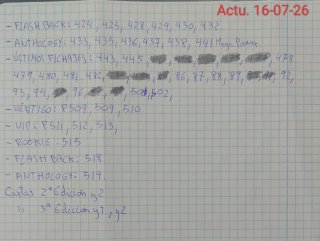 Actu. 16-07-26
- FLASH BACK: 424, 425, 428, 429, 430, 432
- ANTHOLOGY: 433, 435, 436, 437, 438, 441
- ÚLTIMOS FICHAJES: 443, 445, 478
479, 480, 481, 482, 86, 87, 88, 89, 92,
93, 94, 96, 501, 502,
- VERTIGO: P509, 509, 510
- VIP: P511, 512, 513,
- ROOKIE: 515
- FLASH BACK: 518
- ANTHOLOGY: 519.
Cartas 2ª Edición y2
11 3ª Edición y1, y2